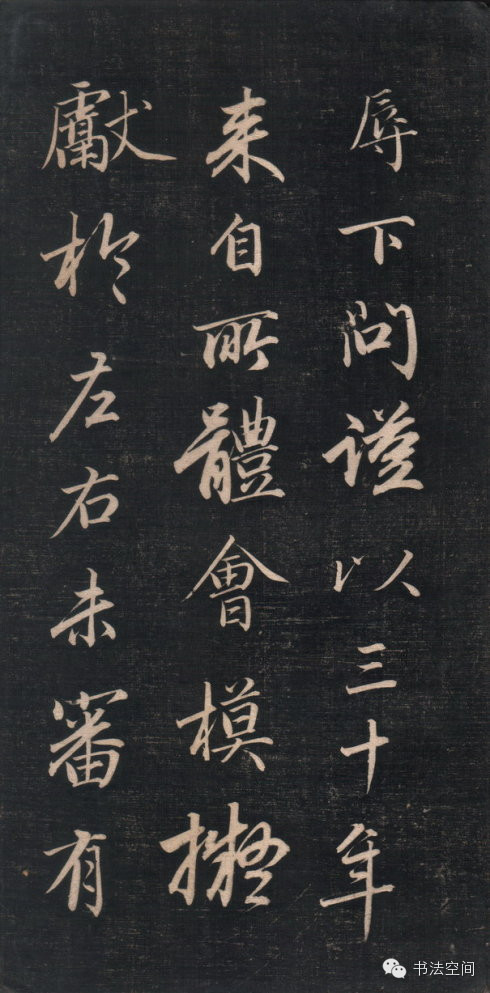 辱下問謹以三十年
来自所體會模擬
獻於左右未審有
书法空间